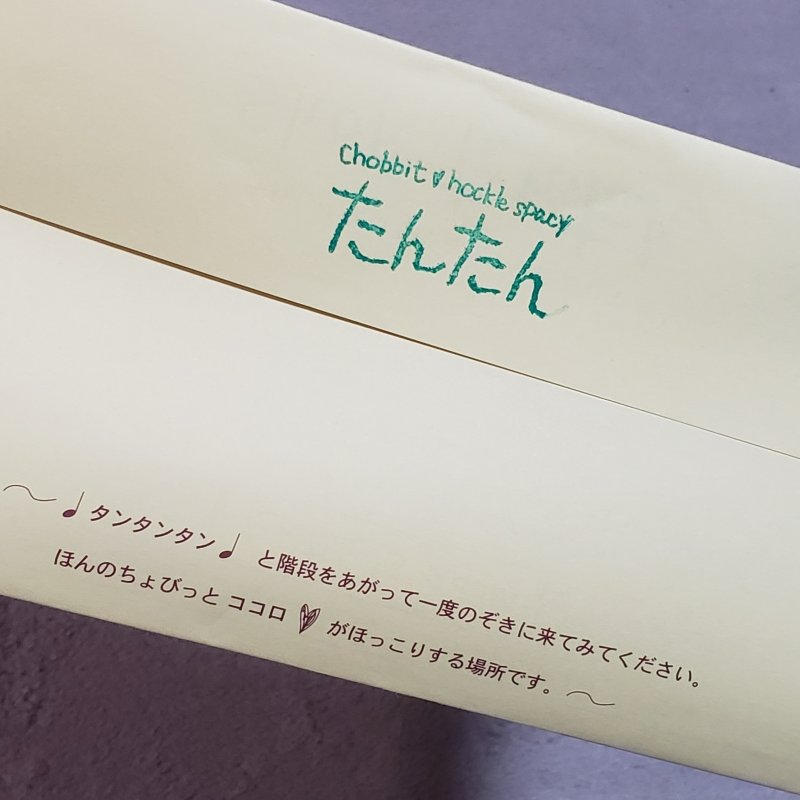 chobbit♥hockle spacy
たんたん
～♩タンタンタン♩ と階段をあがって一度のぞきに来てみてください。
ほんのちょびっとココロ♡がほっこりする場所です。～